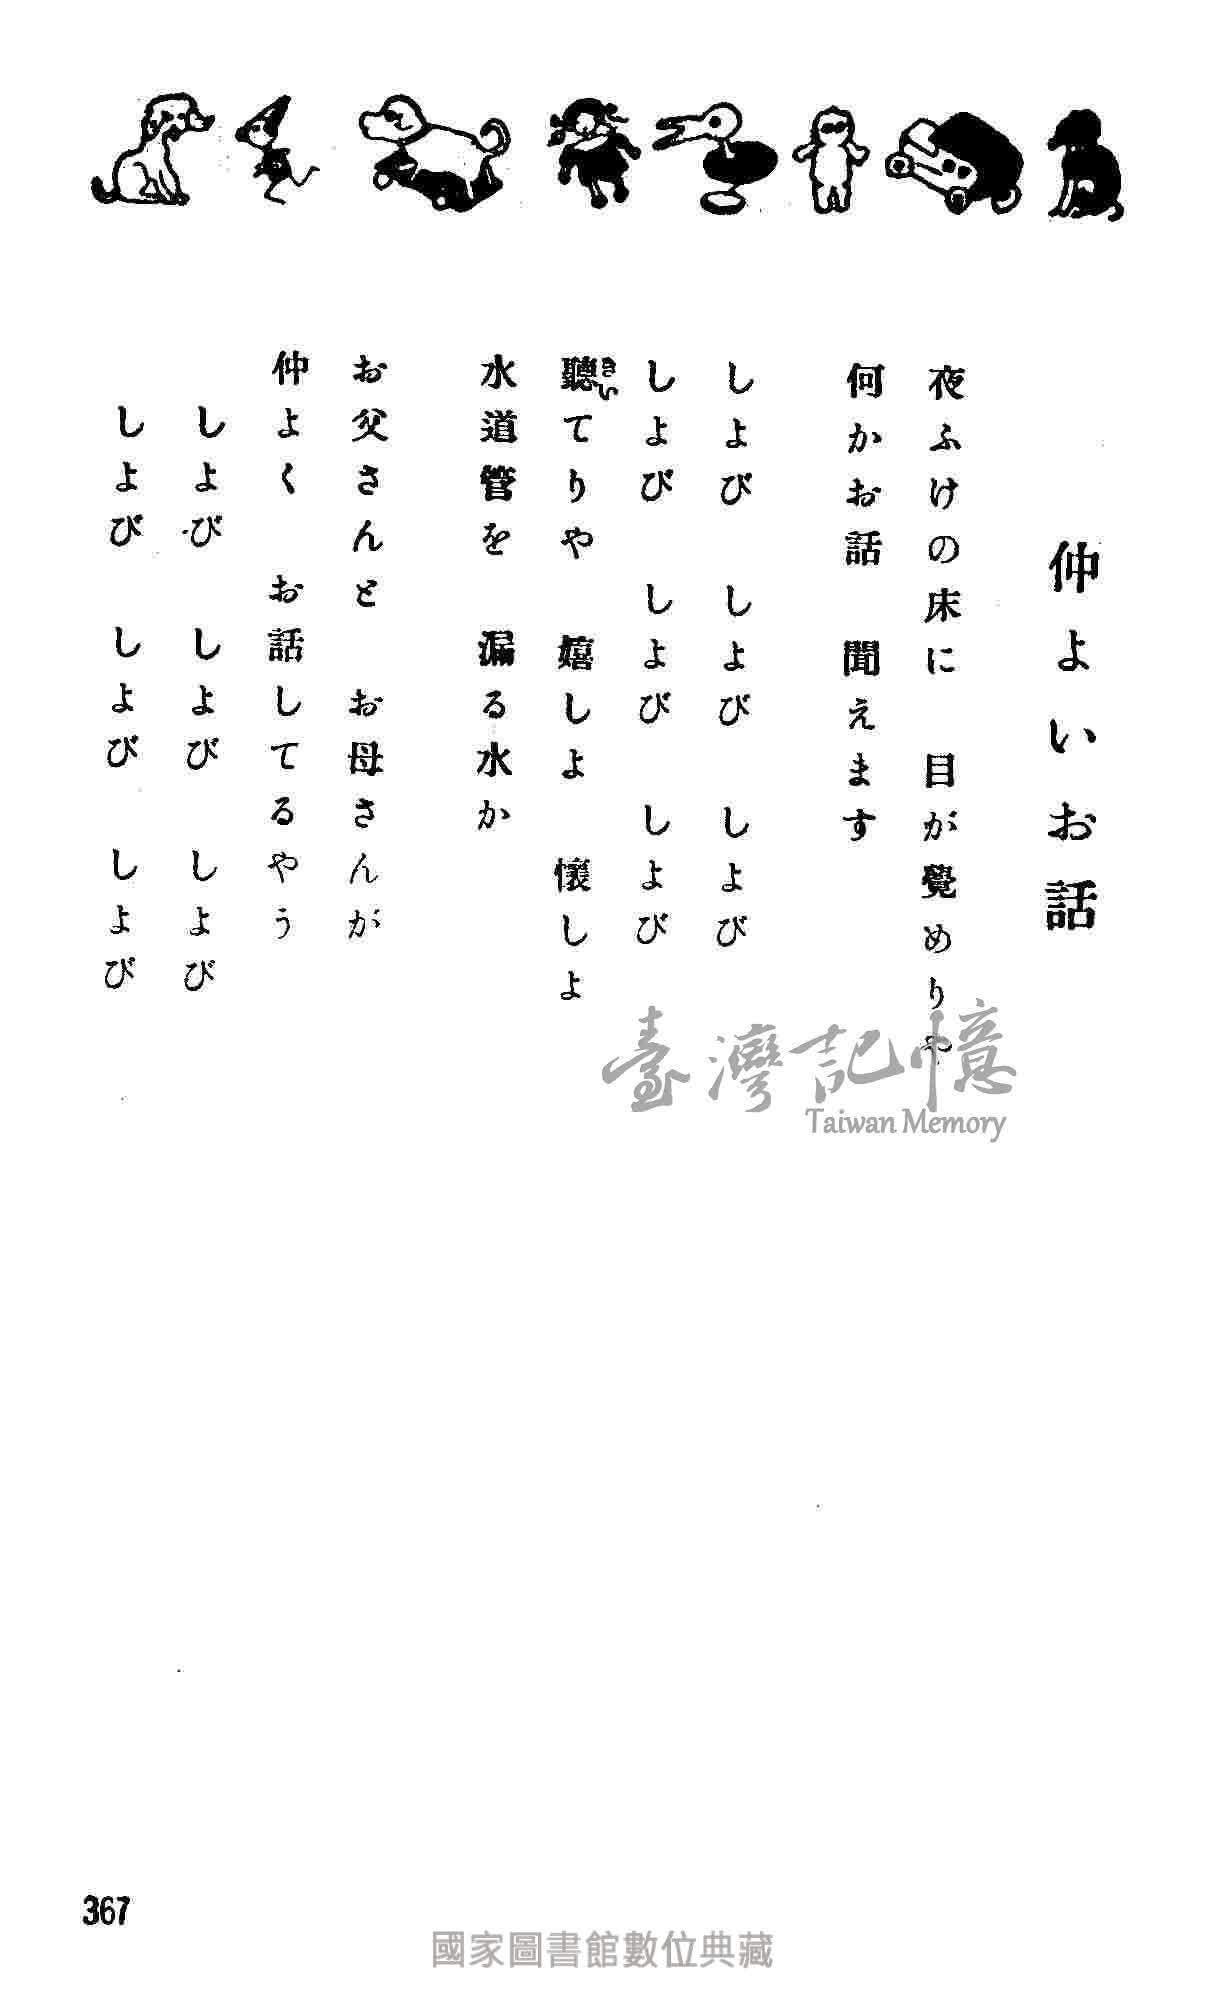 仲よいお話
夜ふけの床に　目が覺めりや
何かお話　聞えます
しよび　しよび　しよび
しよび　しよび　しよび
聽てりや　嬉しよ　懷しよ
きい
水道管を　漏る水か
お父さんと　お母さんが
仲よく　お話してるやう
しよび　しよび　しよび
しよび　しよび　しよび
臺灣記憶
Taiwan Memory
367
國家圖書館數位典藏